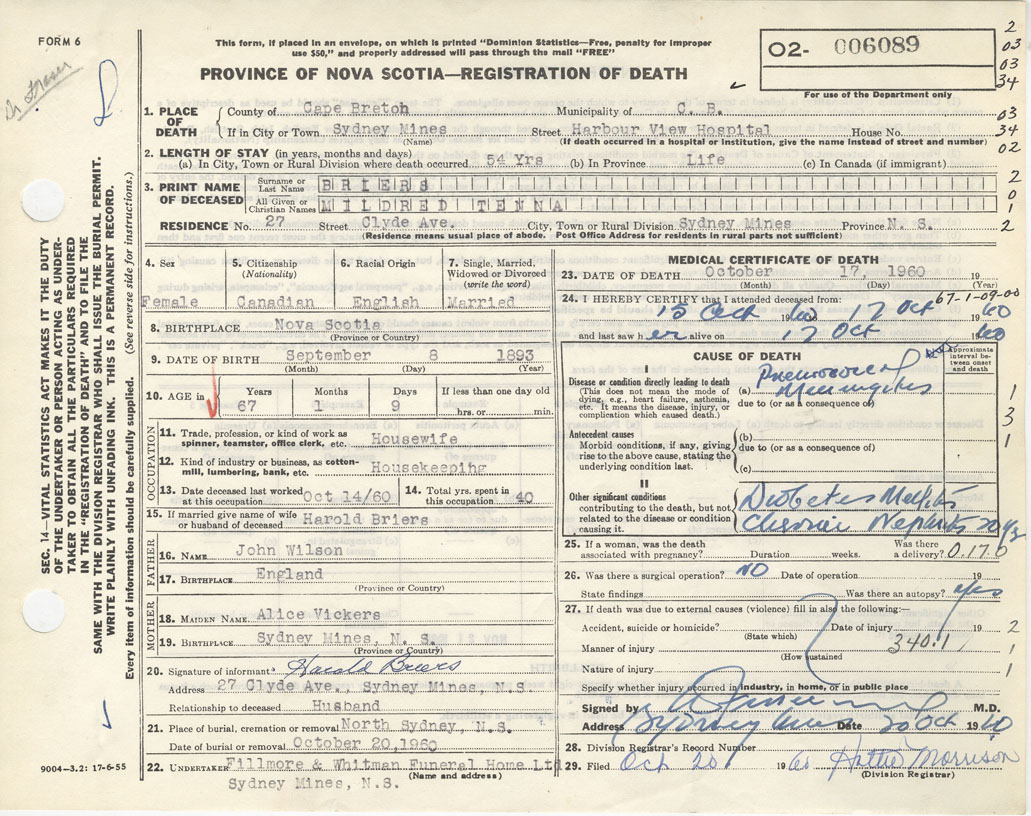 FORM 6
Dr. Fraser
This form, if placed in an envelope, on which is printed "Dominion Statistics—Free, penalty for improper
use $50," and properly addressed will pass through the mail "FREE"
PROVINCE OF NOVA SCOTIA—REGISTRATION OF DEATH
O2- 006089
For use of the Department only
2
03
03
34
03
34
02
2
0
1
2
1. PLACE OF DEATH County of Cape Breton Municipality of C. B.
If in City or Town Sydney Mines Street Harbour View Hospital House No.
(Name) (If death occurred in a hospital or institution, give the name instead of street and number)
2. LENGTH OF STAY (in years, months and days)
(a) In City, Town or Rural Division where death occurred 54 Yrs (b) In Province Life (c) In Canada (if immigrant)
3. PRINT NAME OF DECEASED Surname or Last Name BRIERS
All Given or Christian Names MILDRED TENNA
RESIDENCE No. 27 Street Clyde Ave. City, Town or Rural Division Sydney Mines Province N. S.
(Residence means usual place of abode. Post Office Address for residents in rural parts not sufficient)
4. Sex 5. Citizenship (Nationality) 6. Racial Origin 7. Single, Married, Widowed or Divorced (write the word)
Female Canadian English Married
8. BIRTHPLACE Nova Scotia
(Province or Country)
9. DATE OF BIRTH September 8 1893
(Month) (Day) (Year)
10. AGE in Years Months Days If less than one day old
67 1 9 hrs. or min.
OCCUPATION
11. Trade, profession, or kind of work as spinner, teamster, office clerk, etc. Housewife
12. Kind of industry or business, as cotton-mill, lumbering, bank, etc. Housekeeping
13. Date deceased last worked at this occupation Oct 14/60 14. Total yrs. spent in this occupation 40
15. If married give name of wife or husband of deceased Harold Briers
FATHER
16. NAME John Wilson
17. BIRTHPLACE England
(Province or Country)
MOTHER
18. MAIDEN NAME Alice Vickers
19. BIRTHPLACE Sydney Mines, N. S.
(Province or Country)
20. Signature of informant Harold Briers
Address 27 Clyde Ave., Sydney Mines, N.S.
Relationship to deceased Husband
21. Place of burial, cremation or removal North Sydney, N.S.
Date of burial or removal October 20,1960
22. UNDERTAKER Fillmore & Whitman Funeral Home Ltd
(Name and address)
Sydney Mines, N.S.
MEDICAL CERTIFICATE OF DEATH
23. DATE OF DEATH October 17, 1960 19
(Month) (Day) (Year)
67-1-09-00
24. I HEREBY CERTIFY that I attended deceased from:
15 Oct 1960 17 Oct 1960
and last saw her alive on 17 Oct 1960
CAUSE OF DEATH
Approximate interval between onset and death
I
Disease or condition directly leading to death
(This does not mean the mode of dying, e.g., heart failure, asthenia, etc. It means the disease, injury, or complication which caused death.)
(a) Pneumococcal Meningitis
due to (or as a consequence of)
Antecedent causes
Morbid conditions, if any, giving rise to the above cause, stating the underlying condition last.
(b)
due to (or as a consequence of)
(c)
II
Other significant conditions
contributing to the death, but not related to the disease or condition causing it.
Diabetes Mellitus
Chronic Nephritis
1
3
1
25. If a woman, was the death associated with pregnancy? Duration weeks. Was there a delivery? 0.170
26. Was there a surgical operation? NO Date of operation 19
State findings Was there an autopsy? Yes
27. If death was due to external causes (violence) fill in also the following:—
Accident, suicide or homicide? Date of injury 19 2
(State which)
Manner of injury 340.1 1
(How sustained
Nature of injury 1
Specify whether injury occurred in industry, in home, or in public place
Signed by M.D.
Address Sydney Mines Date 20 Oct 1960
28. Division Registrar's Record Number
29. Filed Oct 20 1960 Hattie Morrison
(Division Registrar)
SEC. 14—VITAL STATISTICS ACT MAKES IT THE DUTY
OF THE UNDERTAKER OR PERSON ACTING AS UNDER-
TAKER TO OBTAIN ALL THE PARTICULARS REQUIRED
IN THE "REGISTRATION OF DEATH" AND TO FILE THE
SAME WITH THE DIVISION REGISTRAR WHO SHALL ISSUE THE BURIAL PERMIT.
WRITE PLAINLY WITH UNFADING INK. THIS IS A PERMANENT RECORD.
Every item of information should be carefully supplied. (See reverse side for instructions.)
9004—3.2: 17-6-55